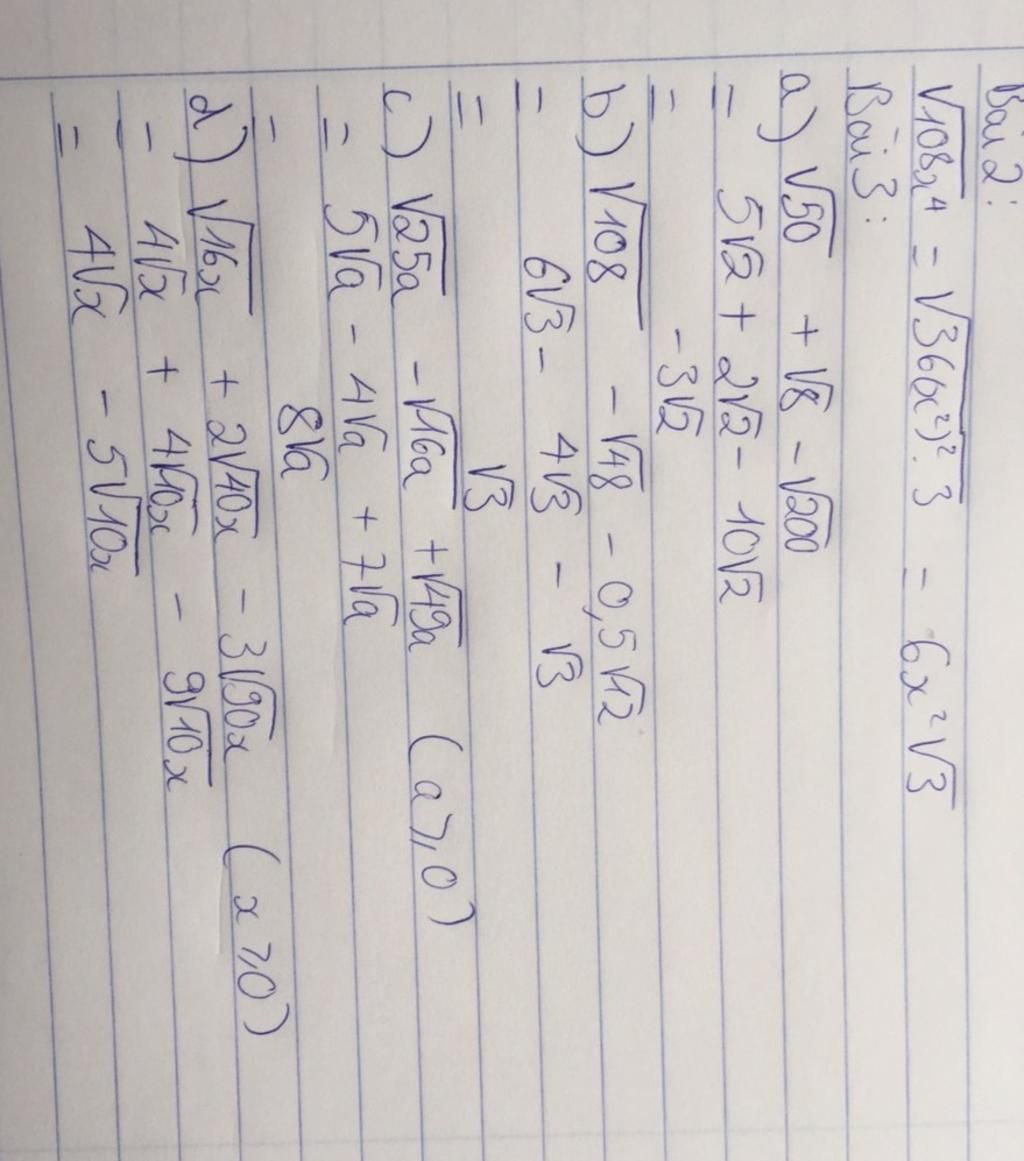 Bài 2:
√108x⁴ = √36(x²)².3 = 6x²√3
Bài 3:
a) √50 + √8 - √200
= 5√2 + 2√2 - 10√2
= -3√2
b) √108 - √48 - 0,5√12
= 6√3 - 4√3 - √3
= √3
c) √25a - √16a + √49a (a ≥ 0)
= 5√a - 4√a + 7√a
= 8√a
d) √16x + 2√40x - 3√90x (x ≥ 0)
= 4√x + 4√10x - 9√10x
= 4√x - 5√10x